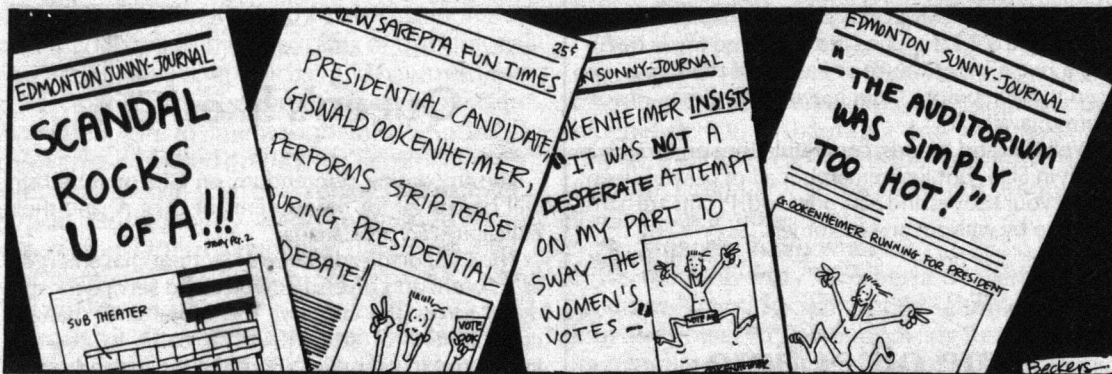 EDMONTON SUNNY-JOURNAL
SCANDAL
ROCKS
U OF A!!!
STORY PG. 2
SUB THEATER
NEW SAREPTA FUN TIMES
25¢
PRESIDENTIAL CANDIDATE,
GISWALD OOKENHEIMER,
PERFORMS STRIP-TEASE
DURING PRESIDENTIAL
DEBATE!
VOTE
OOK
N SUNNY-JOURNAL
OKENHEIMER INSISTS
"IT WAS NOT A
DESPERATE ATTEMPT
ON MY PART TO
SWAY THE
WOMEN'S
VOTES—"
VOTE
OOKENHEIMER
EDMONTON SUNNY-JOURNAL
"—THE AUDITORIUM
WAS SIMPLY
TOO HOT!"
G. OOKENHEIMER RUNNING FOR PRESIDENT
Beckers